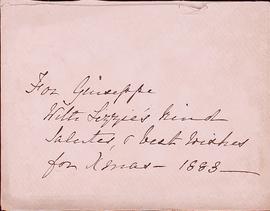 For Giuseppe
With Lizzie's kind
Salutes, & best wishes
for Xmas — 1883 —